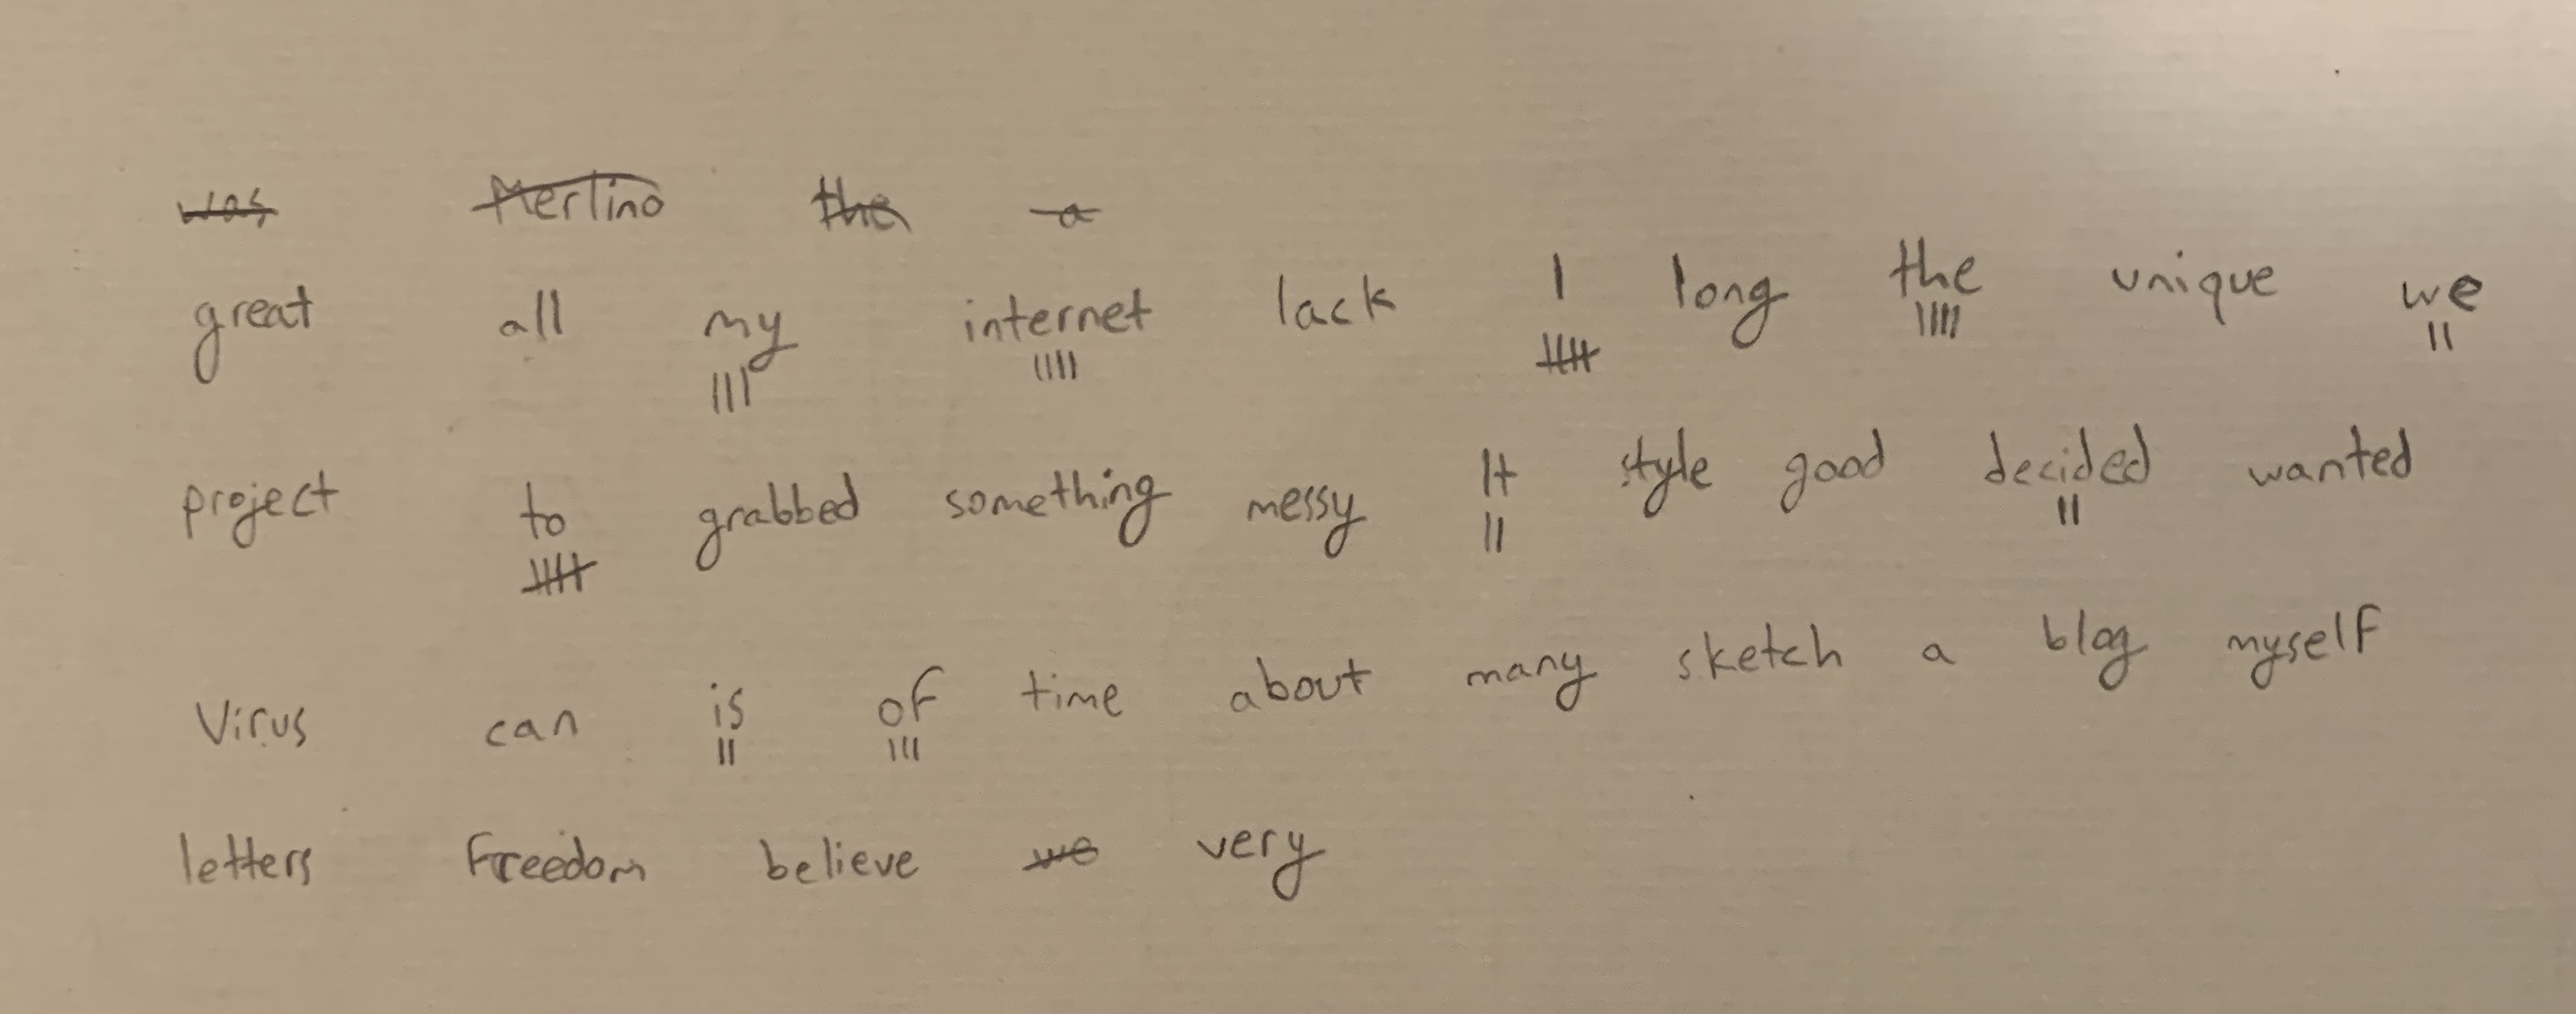 was Merlino the a
great all my internet lack I long the unique we
||| |||| |||| |||| ||
project to grabbed something messy It style good decided wanted
|||| || ||
Virus can is of time about many sketch a blog myself
|| |||
letters Freedom believe we very